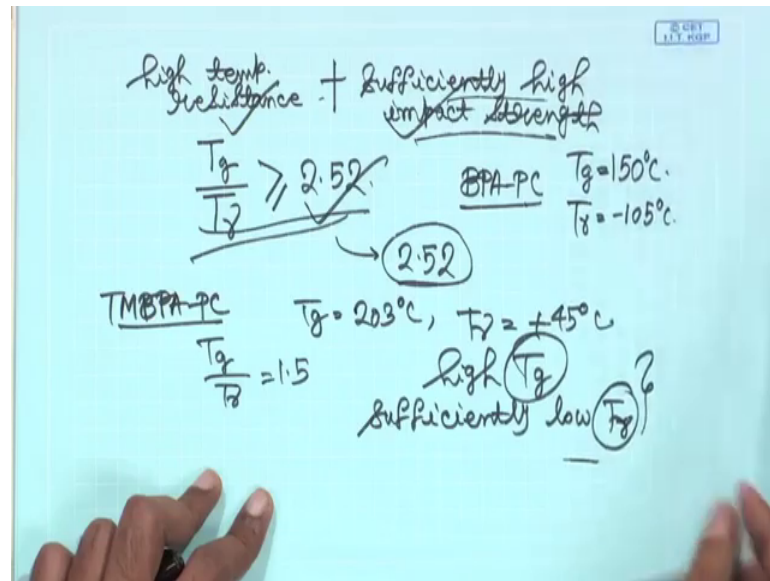 © CET
I.I.T. KGP
high temp. resistance + Sufficiently high impact strength
Tg/Tγ ⩾ 2.52
BPA-PC Tg=150°C.
Tγ = -105°C.
2.52
TMBPA-PC Tg = 203°C, Tγ = +45°C
Tg/Tγ = 1.5
high Tg
sufficiently low Tγ ?